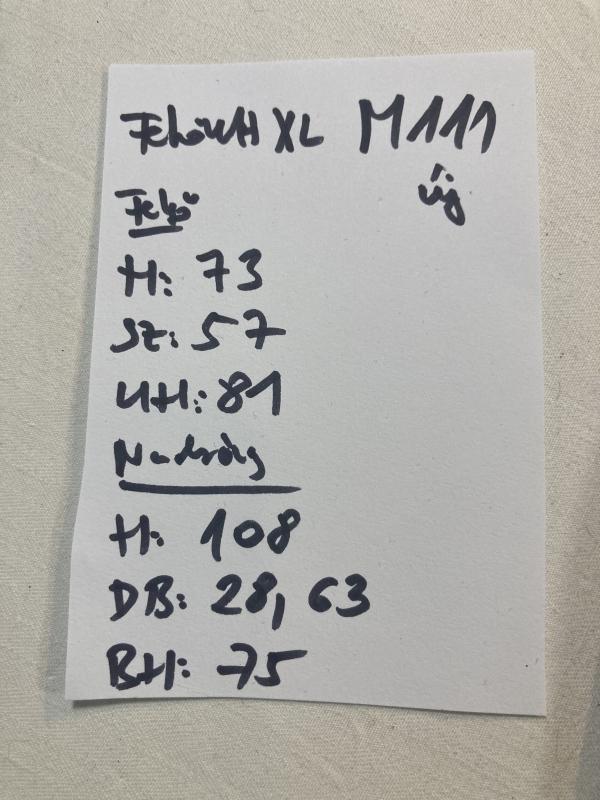 Felnőtt XL M111
új
Felső
H: 73
SZ: 57
UH: 81
Nadrág
H: 108
DB: 28, 63
BH: 75